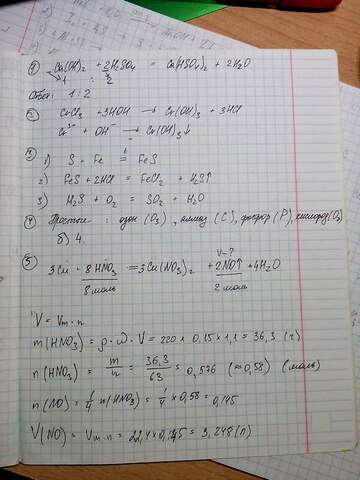 ① Ca(OH)₂ + 2H₂SO₄ = Ca(HSO₄)₂ + 2H₂O
1 : 2
Ответ: 1:2
② CrCl₃ + 3HOH → Cr(OH)₃ + 3HCl
Cr³⁺ + OH⁻ → Cr(OH)₃↓
③ 1) S + Fe =ᵗ FeS
2) FeS + 2HCl = FeCl₂ + H₂S↑
3) H₂S + O₂ = SO₂ + H₂O
④ Простые : озон (O₃), алмаз (C), фосфор (P), кислород (O₂)
б) 4
V-?
⑤ 3Cu + 8HNO₃ = 3Cu(NO₃)₂ + 2NO↑ + 4H₂O
8 моль 2 моль
V = Vm · n
m(HNO₃) = ρ · ω · V = 220 × 0,15 × 1,1 = 36,3 (г)
n(HNO₃) = m/n = 36,3/63 = 0,576 (≈0,58) (моль)
n(NO) = 1/4 n(HNO₃) = 1/4 × 0,58 = 0,145
V(NO) = Vm · n = 22,4 × 0,145 = 3,248 (л)